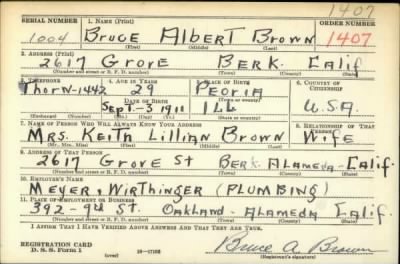 1407
SERIAL NUMBER 1. NAME (Print) ORDER NUMBER
1004 BRUCE ALBERT BROWN 1407
(First) (Middle) (Last)
2. ADDRESS (Print)
2617 GROVE BERK. CALIF
(Number and street or R. F. D. number) (Town) (County) (State)
3. TELEPHONE 4. AGE IN YEARS 5. PLACE OF BIRTH 6. COUNTRY OF CITIZENSHIP
THORN-1442 29 PEORIA
DATE OF BIRTH (Town or county)
SEPT-3-1911 ILL U.S.A.
(Exchange) (Number) (Mo.) (Day) (Yr.) (State or country)
7. NAME OF PERSON WHO WILL ALWAYS KNOW YOUR ADDRESS 8. RELATIONSHIP OF THAT PERSON
MRS. KEITH LILLIAN BROWN WIFE
(Mr., Mrs., Miss) (First) (Middle) (Last)
9. ADDRESS OF THAT PERSON
2617 GROVE ST BERK. ALAMEDA - CALIF.
(Number and street or R. F. D. number) (Town) (County) (State)
10. EMPLOYER'S NAME
MEYER, WIRTHINGER (PLUMBING)
11. PLACE OF EMPLOYMENT OR BUSINESS
392-9th ST. OAKLAND - ALAMEDA CALIF.
(Number and street or R. F. D. number) (Town) (County) (State)
I AFFIRM THAT I HAVE VERIFIED ABOVE ANSWERS AND THAT THEY ARE TRUE.
REGISTRATION CARD
D. S. S. Form 1 (over) Bruce A. Brown
(Registrant's signature)